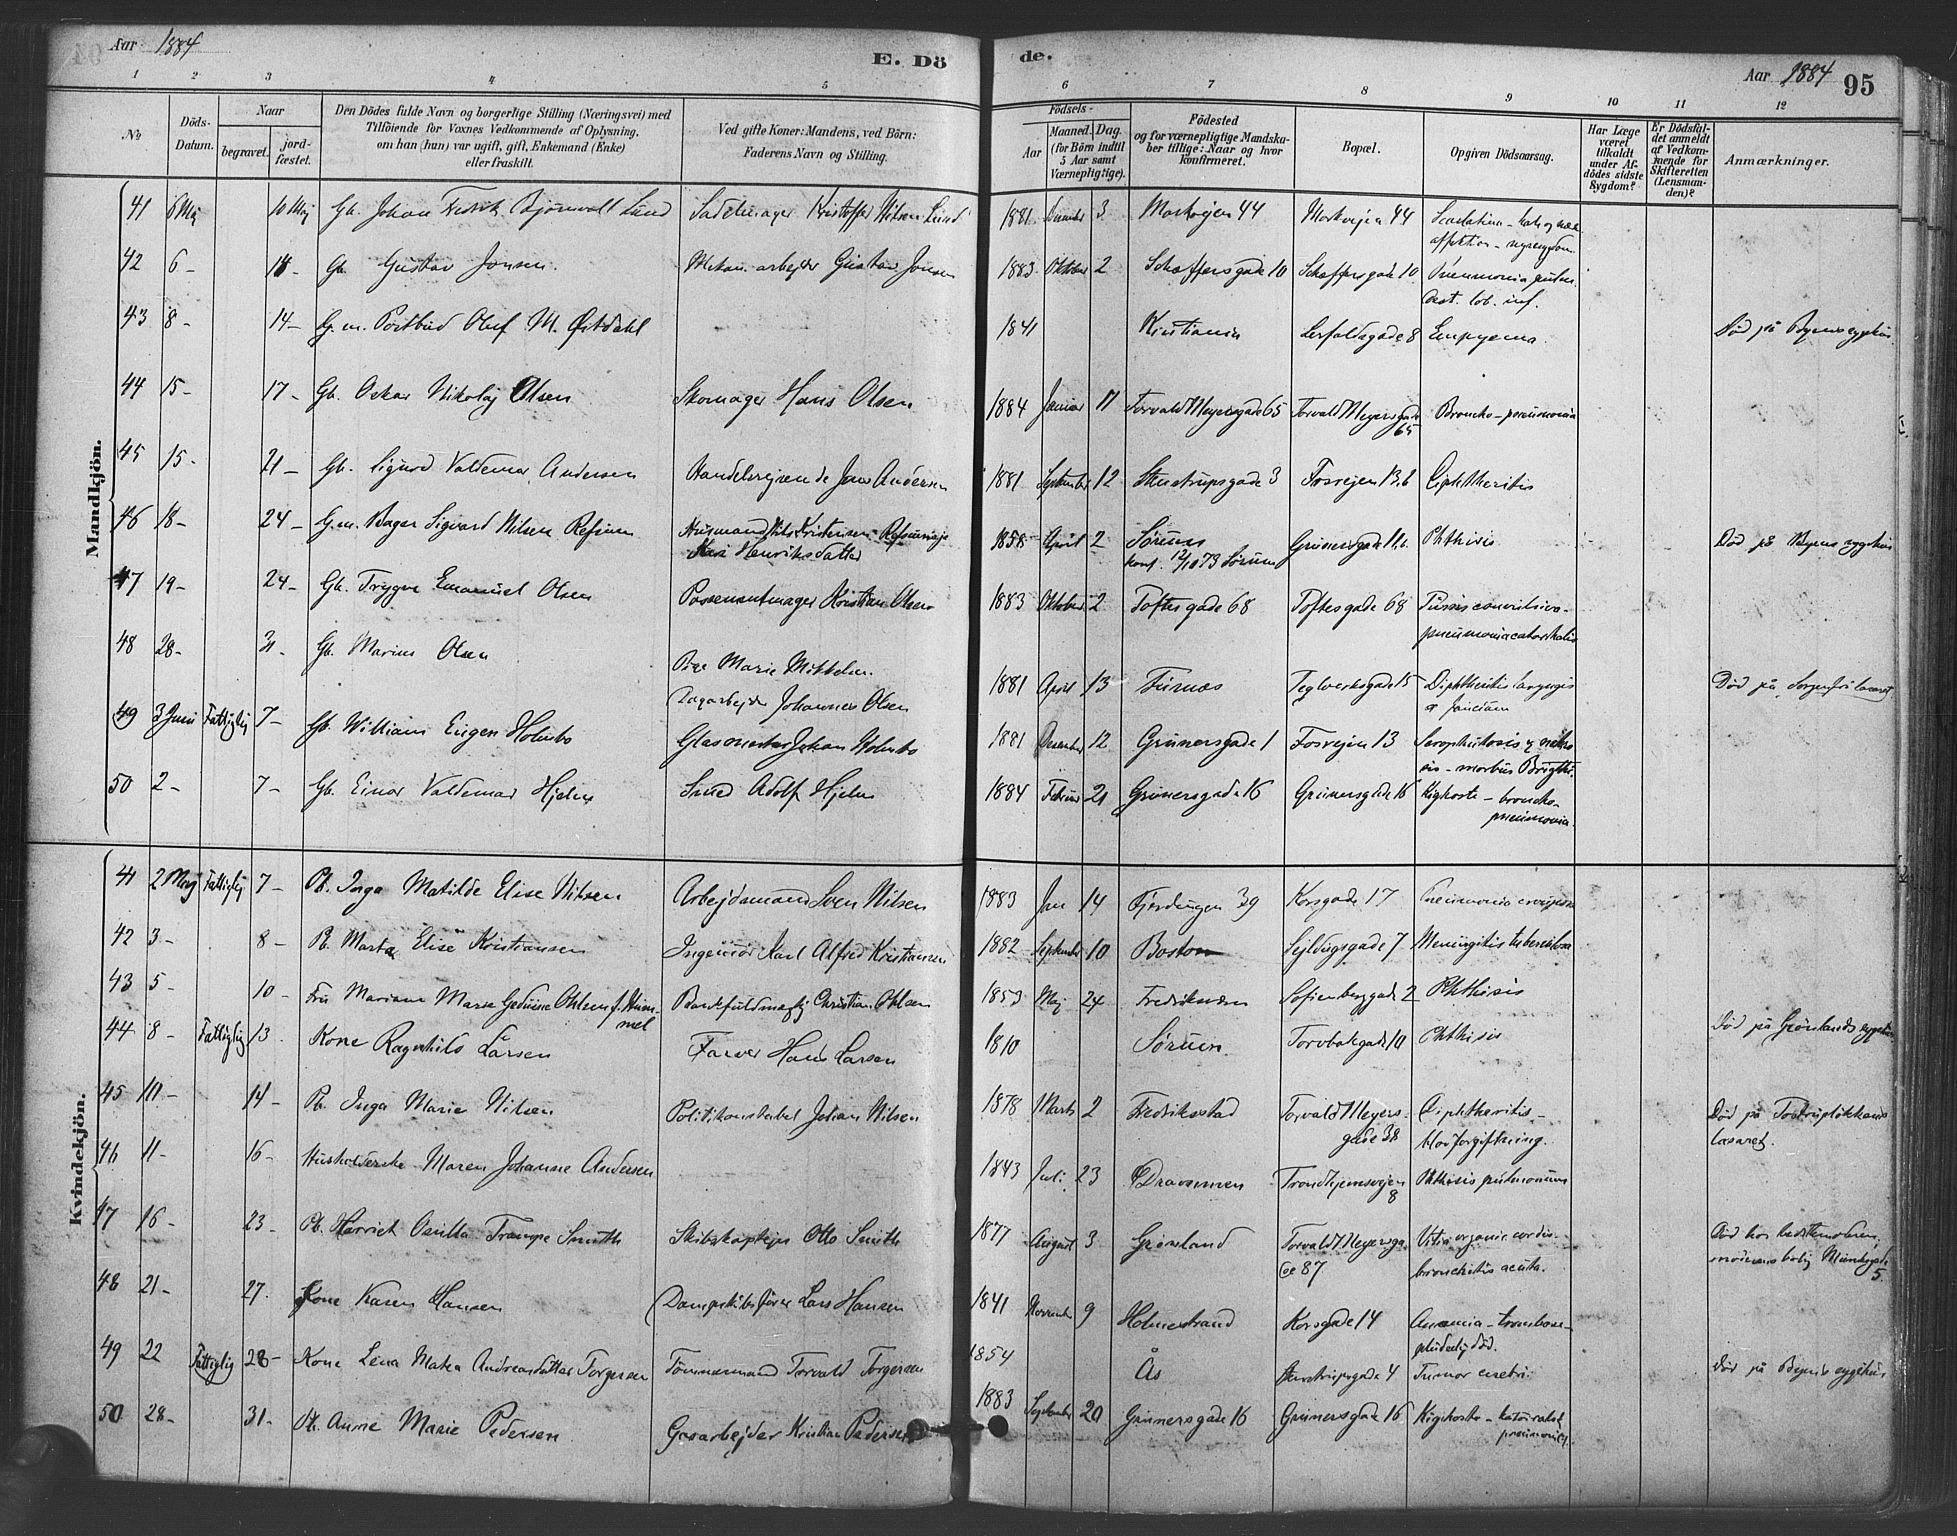 Aar 1884
E. Döde.
Aar 1884 95
1 2 3 4 5 6 7 8 9 10 11 12
No
Döds-Datum.
Naar
begravet.
jord-fæstet.
Den Dödes fulde Navn og borgerlige Stilling (Næringsvei) med
Tilföiende for Voxnes Vedkommende af Oplysning,
om han (hun) var ugift, gift, Enkemand (Enke)
eller fraskilt.
Ved gifte Koner: Mandens, ved Börn:
Faderens Navn og Stilling.
Födsels-
Aar
Maaned. Dag.
(for Börn indtil
5 Aar samt
Værnepligtige).
Födested
og for værnepligtige Mandska-
ber tillige: Naar og hvor
konfirmeret.
Bopæl.
Opgiven Dödsaarsag.
Har Læge
været
tilkaldt
under Af-
dödes sidste
Sygdom?
Er Dödsfal-
det anmeldt
af Vedkom-
mende for
Skifteretten
(Lensman-
den)?
Anmærkninger.
Mandkjön.
41 6 Maj 10 Maj Gb. Johan Fredrik Bjornvolt Lund Sadelmager Kristoffer Nilsen Lund 1881 December 3 Markvejen 44 Markvejen 44 Scarlatina
affektion - nyresygdom
42 6 - 14 Gb. Gustav Jonsen. Mekan. arbejder Gustav Jonsen 1883 Oktober 2 Schæffersgade 10 Schæffersgade 10 Pneumonia
lob. inf.
43 8 - 14 - G.m. Postbud Oluf M. Østdahl 1841 Kristiania Lerfaldsgade 8 Empyema. Død på Byens sygehus.
44 15 - 17 - Gb. Oskar Nikolaj Olsen Skomager Hans Olsen 1884 Januar 17 Torvald Meyersgade 65 Torvald Meyersgade
65 Broncho-pneumonia
45 15 - 21 - Gb. Sigurd Valdemar Andersen Handelsrejsende Jens Andersen 1881 September 12 Stenstrupsgade 3 Fosvejen 13.b Diphtheritis
46 18 - 24 - G.m. Bager Sigvard Nilsen Refsum Husmand Nils Kristensen Refsumeje
Kari Henriksdatter 1858 April 2 Sørum
konf. 12/10 73 Sørum Grünersgade 11.b. Phthisis Død på Byens sygehus
47 19 - 24 - Gb. Trygve Emanuel Olsen Possementmager Kristian Olsen 1883 Oktober 2 Toftesgade 68 Toftesgade 68 Tussis convulsiva -
pneumonia catarrhalis
48 28 - 31 - Gb. Marius Olsen Pige Marie Mikkelsen.
Dagarbejder Johannes Olsen 1881 April 13 Furnæs Teglverksgade 15 Diphtheritis laryngis
& faucium Død på Sorgenfri lasaret
49 3 Juni Fattiglig 7 - Gb. William Eugen Holmbo Glasmester Johan Holmbo 1881 December 12 Grünersgade 1 Fosvejen 13 Scrophulosis
morbus Brigthi.
50 2 - 7 - Gb. Einar Valdemar Hjelm Smed Adolf Hjelm 1884 Februar 21 Grünersgade 16 Grünersgade 16 Kighoste - broncho-
pneumonia.
Kvindekjön.
41 2 Maj Fattiglig 7 - Pb. Inga Matilde Elise Nilsen Arbejdsmand Sven Nilsen 1883 Jan 14 Fjerdingen 39 Korsgade 17 Pneumonia crouposa
42 3 - 8 - Pb. Marta Elise Kristiansen Ingeniør Karl Alfred Kristiansen 1882 September 10 Boston Sejldugsgade 7 Meningitis tuberculosa
43 5 - 10 - Fru Mariane Marie Ohlsen f. Hum-
mel Bankfuldmægtig Christian Ohlsen 1853 Maj 24 Fredriksværn Sofienberggade 2 Phthisis
44 8 - Fattiglig 13. Kone Ragnhild Larsen Farver Hans Larsen 1810 Sørum. Torvbakgade 10 Phthisis Død på Grønlands sygehus
45 10 - 14 - Pb. Inga Marie Nilsen Politikonstabel Johan Nilsen 1878 Marts 2 Fredriksstad Torvald Meyers-
gade 38 Diphtheritis -
blodforgiftning. Død på Tostrupløkkens
lasaret.
46 11 - 16 - Husholderske Maren Johanne Andersen 1843 Juli 23 Drammen Trondhjemsvejen
8 Phthisis pulmonum
47 16 - 23 - Pb. Harriet Trampe Smith Skibskaptejn Otto Smith 1877 August 3 Grønland Torvald Meyersga
de 87 Vitia organic. cordis -
bronchitis acuta. Død hos bedstemoderen,
bolig Munkegade
5.
48 21 - 27. Kone Karen Hansen Dampskibsfører Lars Hansen 1841 November 9 Holmestrand Korsgade 14 Anæmia - trombose -
pludselig død.
49 22 Fattiglig 28 - Kone Lena Matea Andreasdatter Torgersen Tømmermand Torvald Torgersen 1854 Ås Stenstrupsgade 4 Tumor cerebri. Død på Byens sygehus
50 28 - 31 - Pb. Anne Marie Pedersen Gasarbejder Kristian Pedersen 1883 September 20 Grünersgade 16 Grünersgade 16 Kighoste - katarralsk
pneumoni.